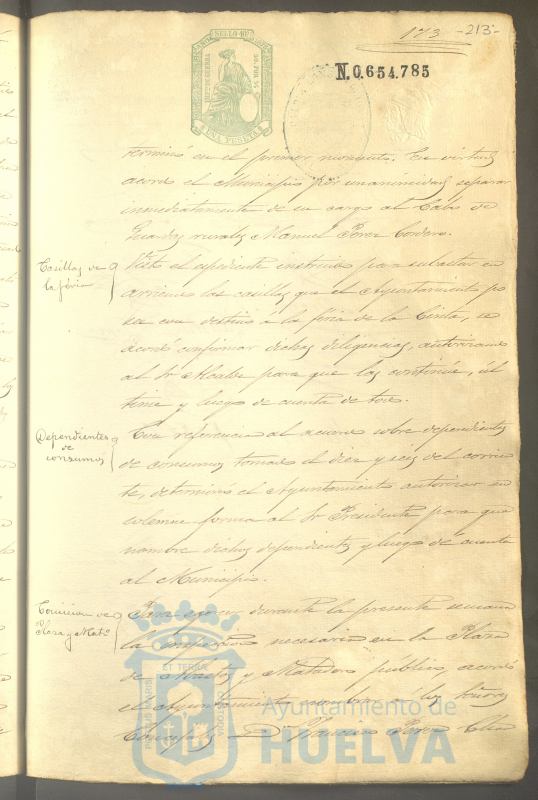 173 -213-
SELLO 10º
UNA PESETA
N.0.654.785
terminó en el primer momento. En virtud
acordó el Municipio por unanimidad separar
inmediatamente de su cargo al Cabo de
Guardas rurales Manuel Perez Cordero.
Casillas de
la féria
Visto el espediente instruido para subastar en
arriendo las casillas que el Ayuntamiento po
see con destino á la féria de la Cinta, se
acordó confirmar dichas diligencias, autorizando
al Sr Alcalde para que las continúe, úl
time y luego dé cuenta de todo.
Dependientes
de
consumos
Con referencia al acuerdo sobre dependientes
de consumos tomado el diez y seis del corrien
te, determinó el Ayuntamiento autorizar en
solemne forma al Sr Presidente para que
nombre dichos dependientes y luego dé cuenta
al Municipio.
Comision de
Plaza y Matº
Para ejercer durante la presente semana
la inspeccion necesaria en la Plaza
de Abastos y Matadero público, acordó
el Ayuntamiento nombrar á los Señores
Concejales D. Francisco Perez
PORTUS MARIS
ET TERRAE
CUSTODIA
Ayuntamiento de
HUELVA